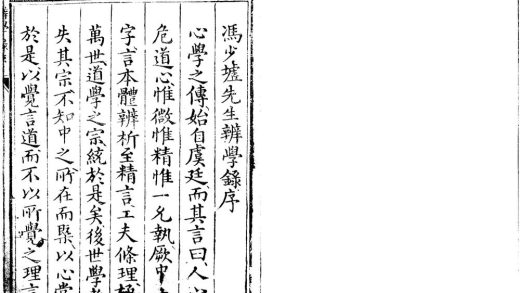 馮少墟先生辨學錄序
心學之傳始自虞廷而其言曰人心
危道心惟微惟精惟一允執厥中
字言本體辨析至精言工夫條理極
萬世道學之宗統於是矣後世學者
失其宗不知中之所在而槩以心當
於是以覺言道而不以所覺之理言